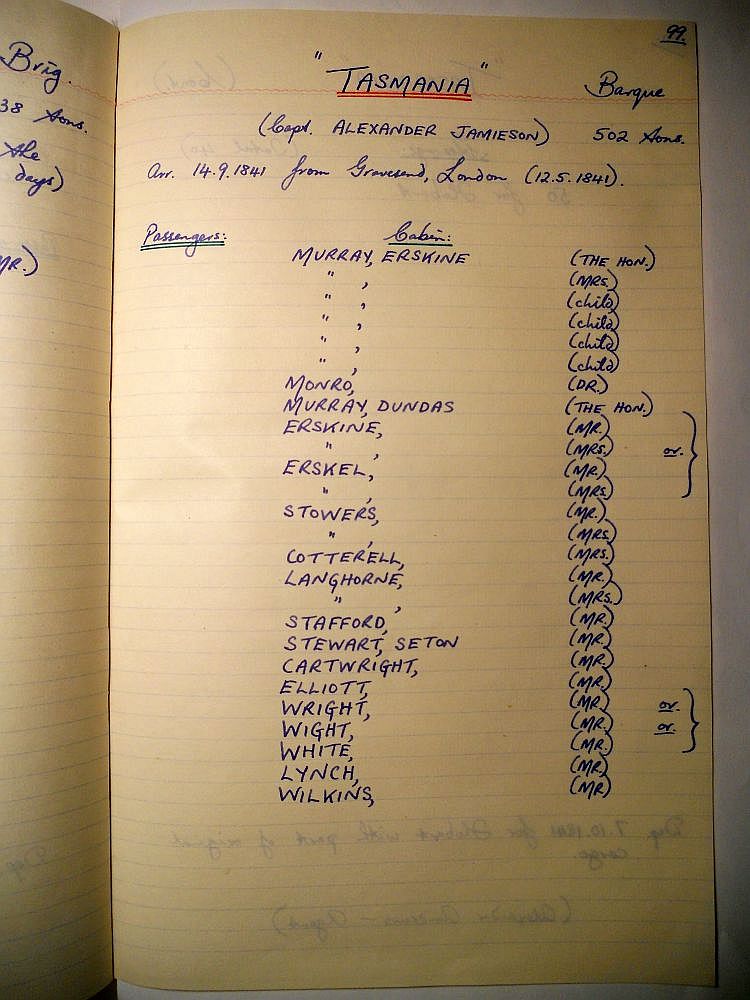 Brig.
38 tons.
the
days)
MR.)
99.
"TASMANIA" Barque
(Capt. ALEXANDER JAMIESON) 502 tons.
Arr. 14.9.1841 from Gravesend, London (12.5.1841).
Passengers: Cabin:
MURRAY, ERSKINE (THE HON.)
" , (MRS.)
" , (child)
" , (child)
" , (child)
" , (child)
MONRO, (DR.)
MURRAY, DUNDAS (THE HON.)
ERSKINE, (MR.)
" , (MRS.) or.
ERSKEL, (MR.)
" , (MRS)
STOWERS, (MR.)
" , (MRS)
COTTERELL, (MRS.)
LANGHORNE, (MR.)
" , (MRS.)
STAFFORD, (MR.)
STEWART, SETON (MR.)
CARTWRIGHT, (MR.)
ELLIOTT, (MR.)
WRIGHT, (MR.) or.
WIGHT, (MR.) or.
WHITE, (MR.)
LYNCH, (MR.)
WILKINS, (MR)